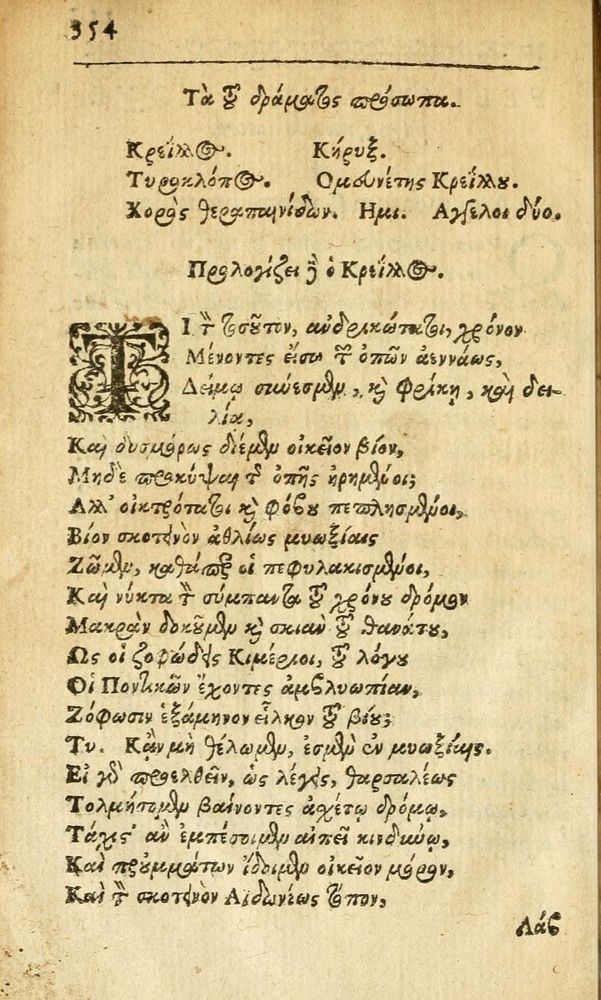 354
Τὰ τοῦ δράματος πρόσωπα.
Κρεΐλλος. Κήρυξ.
Τυροκλόπος. Ομευνέτης Κρεΐλλου.
Χορὸς θεραπαινίδων. Ημι. Αγγελοι δύο.
Προλογίζει ὁ Κρεΐλλος.
ΤΙ τὸν τοσοῦτον, ἀνδρικώτατοι, χρόνον
Μένοντες εἴσω τῶν ὀπῶν ἀεννάως,
Δείμῳ σύνεσμεν, καὶ φρίκῃ, καὶ δει-
λίᾳ,
Καὶ δυσμόρως διέμεν οἰκεῖον βίον,
Μηδὲ προκύψαι τῆς ὀπῆς ᾑρημένοι;
Αλλ' οἰκτρότατοι καὶ φόβου πεπλησμένοι,
Βίον σκοτεινὸν ἀθλίως μυωξίαις
Ζῶμεν, καθάπερ οἱ πεφυλακισμένοι,
Καὶ νύκτα τὸν σύμπαντα τοῦ χρόνου δρόμον
Μακρὰν δοκοῦμεν καὶ σκιὰν τοῦ θανάτου,
Ως οἱ ζοφώδεις Κιμέριοι, τοῦ λόγου
Οἱ Ποντικῶν ἔχοντες ἀμβλυωπίαν,
Ζόφωσιν ἑξάμηνον εἷλκον τοῦ βίου;
Τυ. Κἂν μὴ θέλωμεν, ἐσμὲν ἐν μυωξίαις.
Εἰ γὰρ προελθεῖν, ὡς λέγεις, θαρσαλέως
Τολμήσομεν βαίνοντες ἀχέτῳ δρόμῳ,
Τάχιστ' ἂν ἐμπέσοιμεν αἰπεῖ κινδύνῳ,
Καὶ πρὸ ὀμμάτων ἴδοιμεν οἰκεῖον μόρον,
Καὶ τὸν σκοτεινὸν Αἰδωνέως τόπον,